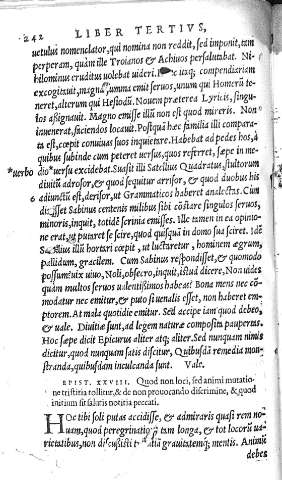 242 LIBER TERTIVS,
uetulus nomenclator, qui nomina non reddit, sed imponit, tam
perperam, quàm ille Troianos & Achiuos persalutabat. Ni-
hilominus eruditus uolebat uideri. uxq; compendiariam
excogitauit, magna summa emit seruos, unum qui Homerũ te-
neret, alterum qui Hesiodũ. Nouem præterea Lyricis, singu-
los aßignauit. Magno emisse illũ non est quod mireris. Non
inuenerat, faciendos locauit. Postquã hæc familia illi compara-
ta est, cœpit conuiuas suos inquietare. Habebat ad pedes hos, à
quibus subinde cum peteret uersus, quos referret, sæpe in me-
*uerbo dio *uersu excidebat. Suasit illi Satellius Quadratus, stultorum
diuitũ adrosor, & quod sequitur arrisor, & quod duobus his
6 adiunctũ est, derisor, ut Grammaticos haberet analectas. Cum
dixisset Sabinus centenis milibus sibi cõstare singulos seruos,
minoris, inquit, totidẽ scrinia emisses. Ille tamen in ea opinio-
ne erat, ut putaret se scire, quod quisquã in domo sua sciret. Idẽ
Satellius illũ hortari cœpit, ut luctaretur, hominem ægrum,
pallidum, gracilem. Cum Sabinus respondisset, & quomodo
possum? uix uiuo, Noli, obsecro, inquit, istud dicere, Non uides
quàm multos seruos ualentißimos habeas? Bona mens nec cõ-
modatur nec emitur, & puto si uenalis esset, non haberet em-
ptorem. At mala quotidie emitur. Sed accipe iam quod debeo,
& uale. Diuitiæ sunt, ad legem naturæ composita paupertas.
Hoc sæpe dicit Epicurus aliter atq; aliter. Sed nunquam nimis
dicitur, quod nunquam satis discitur, Quibusdã remedia mon-
stranda, quibusdam inculcanda sunt. Vale.
EPIST. XXVIII. Quod non loci, sed animi mutatio-
ne tristitia tollitur, & de non prouocando discrimine, & quod
initium sit salutis notitia peccati.
HOc tibi soli putas accidisse, & admiraris quasi rem no-
uam, quod peregrinatiõe tam longa, & tot locorũ ua-
rietatibus, non discußisti tristitiã grauitatemq; mentis. Animũ
debes